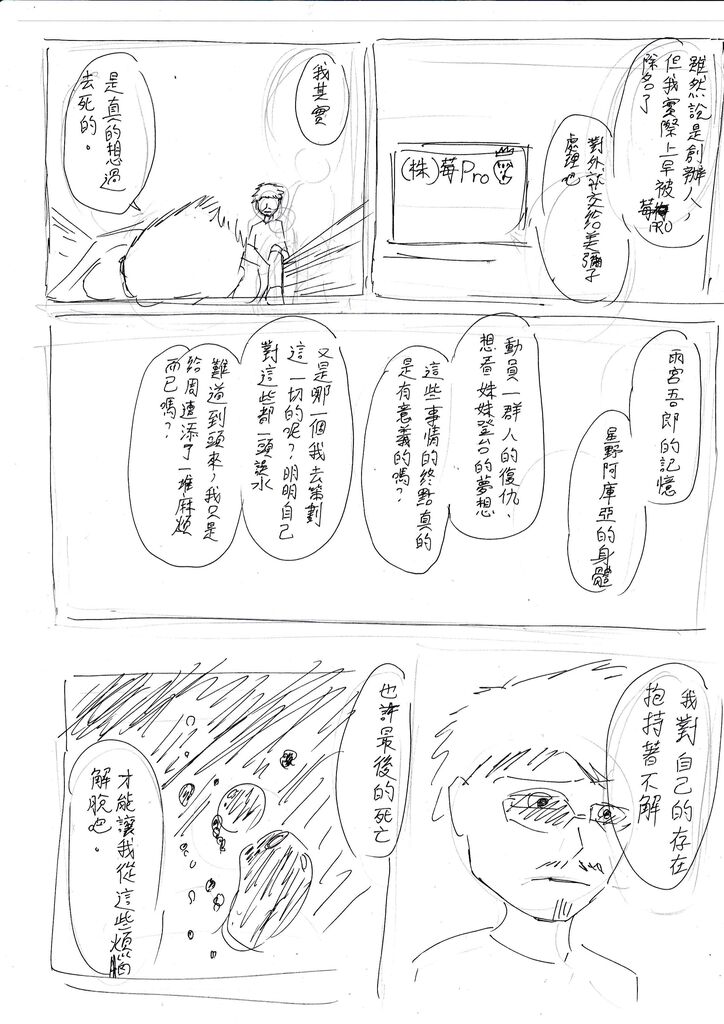 雖然說是創辦人,
但我實際上早被
莓PRO
除名了
對外就交給美彌子
處理也
(株)莓Pro
我其實
是真的想過
去死的。
雨宮吾郎的記憶
星野阿庫亞的身體
動員一群人的復仇、
想著妹妹登台的夢想
這些事情的終點真的
是有意義的嗎?
又是哪一個我去策劃
這一切的呢?明明自己
對這些都一頭霧水
難道到頭來,我只是
給周遭添了一堆麻煩
而已嗎?
我對自己的存在
抱持著不解
也許最後的死亡
才能讓我從這些煩惱
解脫吧。